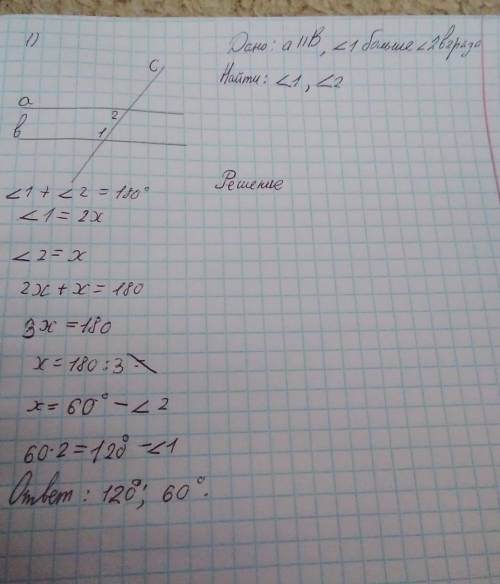 1)
Дано: a || в, ∠1 больше ∠2 в 2 раза
Найти: ∠1, ∠2
c
a
2
в
1
Решение
∠1 + ∠2 = 180°
∠1 = 2x
∠2 = x
2x + x = 180
3x = 180
x = 180 : 3
x = 60° - ∠2
60·2 = 120° - ∠1
Ответ: 120°; 60°.